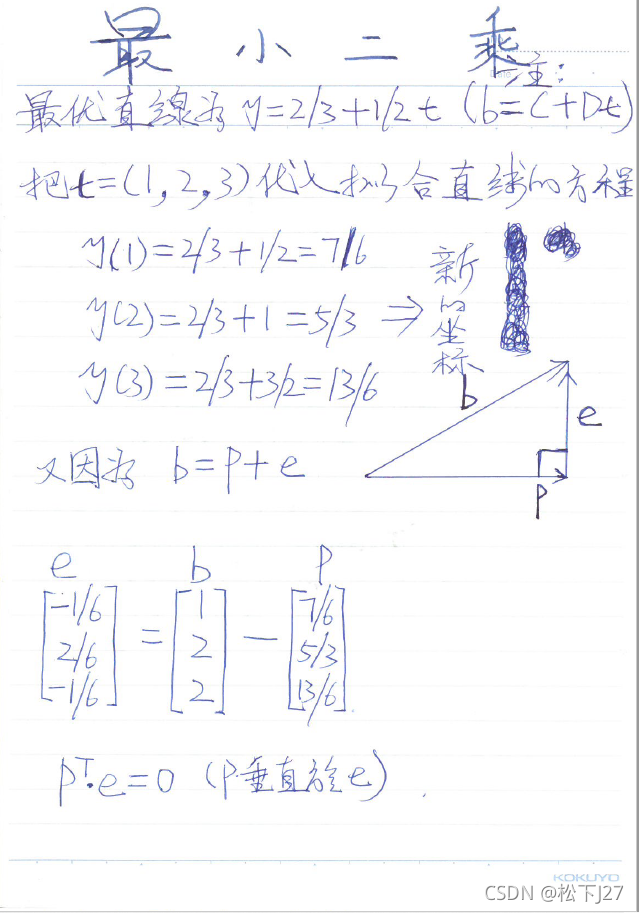 最 小 二 乘
注:
最优直线为 y=2/3+1/2t (b=C+Dt)
把t=(1,2,3)代入拟合直线的方程
y(1)=2/3+1/2=7/6
y(2)=2/3+1=5/3 ⇒ 新的坐标
y(3)=2/3+3/2=13/6
又因为 b=p+e
b
e
p
e b p
[-1/6] [1] [7/6]
[2/6] = [2] - [5/3]
[-1/6] [2] [13/6]
pᵀ·e=0 (p垂直于e)
KOKUYO
CSDN @松下J27